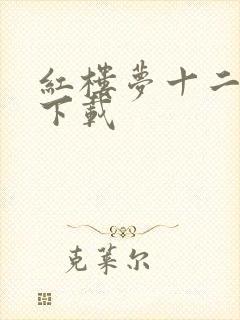 紅樓夢十二
下載
克萊尔